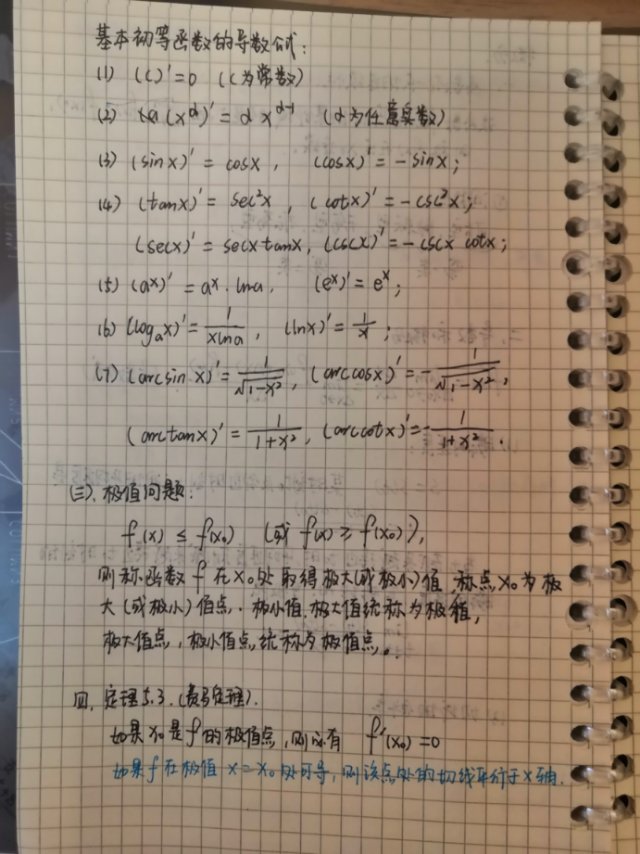 基本初等函数的导数公式:
(1) (C)'=0 (C为常数)
(2) (x^α)'=αx^(α-1) (α为任意实数)
(3) (sinx)'=cosx, (cosx)'=-sinx;
(4) (tanx)'=sec²x, (cotx)'=-csc²x;
(secx)'=secx tanx, (cscx)'=-cscx cotx;
(5) (a^x)'=a^x·lna, (e^x)'=e^x;
(6) (log_a x)'=1/(xlna), (lnx)'=1/x;
(7) (arcsin x)'=1/√(1-x²), (arccosx)'=-1/√(1-x²),
(arctanx)'=1/(1+x²), (arccotx)'=-1/(1+x²).
(三). 极值问题.
f(x)≤f(x₀) (或 f(x)≥f(x₀)),
则称函数 f 在 x₀ 处取得极大(或极小)值,称点 x₀ 为极
大(或极小)值点. 极小值,极大值统称为极值,
极大值点,极小值点,统称为极值点。
四. 定理5.3.(费马定理).
如果 x₀ 是 f 的极值点,则必有 f'(x₀)=0
如果 f 在极值 x=x₀ 处可导,则该点处的切线平行于 x 轴.